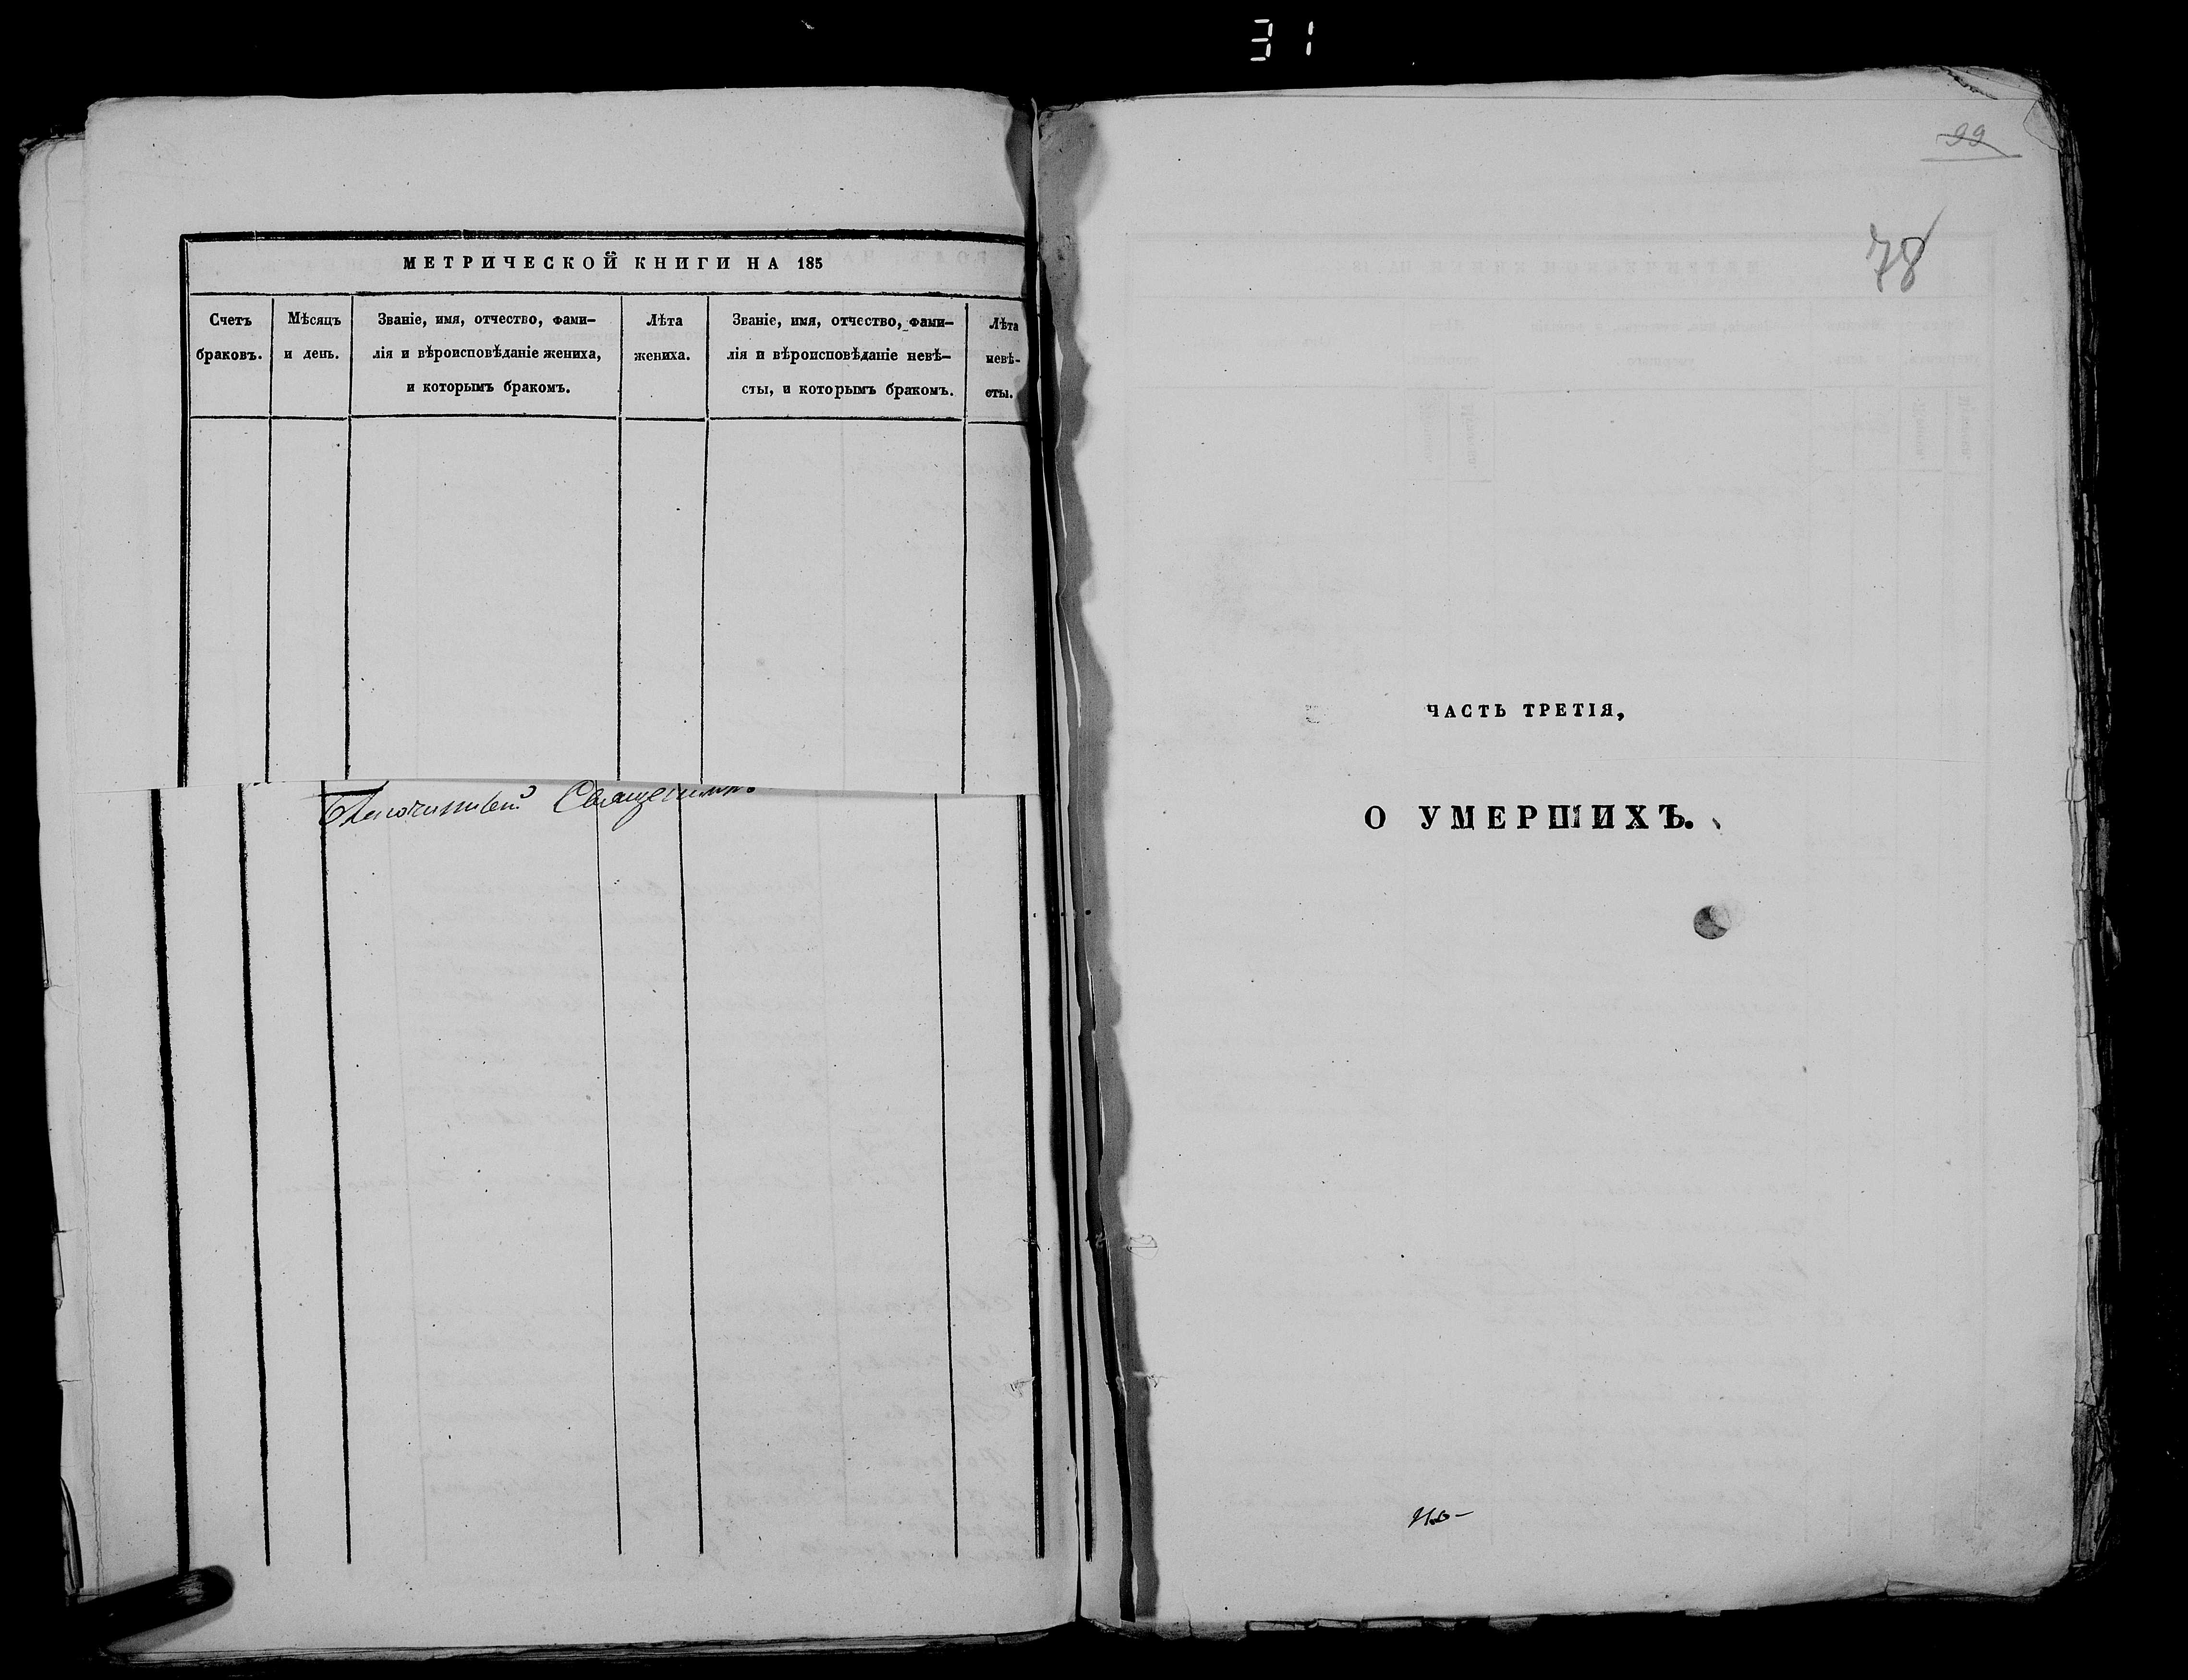 31
МЕТРИЧЕСКОЙ КНИГИ НА 185
Счетъ браковъ.
Мѣсяцъ и день.
Званіе, имя, отчество, фами-
лія и вѣроисповѣданіе жениха,
и которымъ бракомъ.
Лѣта жениха.
Званіе, имя, отчество, фами-
лія и вѣроисповѣданіе невѣ-
сты, и которымъ бракомъ.
Лѣта невѣ-
сты.
Священникъ
99
78
ЧАСТЬ ТРЕТІЯ,
О УМЕРШИХЪ.